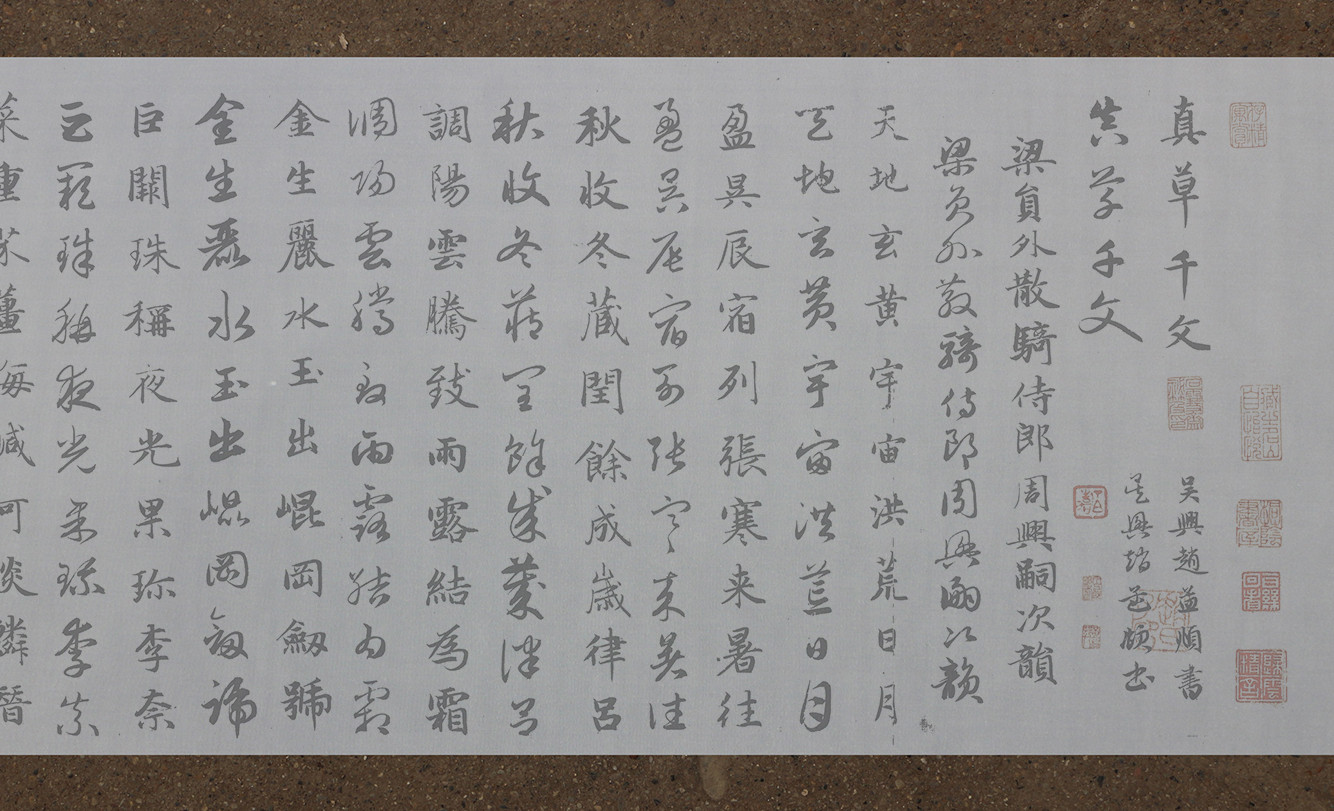 真草千文
真草千文
吴興趙孟頫書
吴興趙孟頫書
梁員外散騎侍郎周興嗣次韻
梁員外散騎侍郎周興嗣次韻
天地玄黄宇宙洪荒日月
天地玄黄宇宙洪荒日月
盈昃辰宿列張寒来暑往
盈昃辰宿列張寒来暑往
秋收冬蔵閏餘成歲律吕
秋收冬蔵閏餘成歲律吕
調陽雲騰致雨露結為霜
調陽雲騰致雨露結為霜
金生麗水玉出崐岡劒號
金生麗水玉出崐岡劒號
巨闕珠稱夜光果珎李奈
巨闕珠稱夜光果珎李奈
菜重芥薑海鹹河淡鱗潛